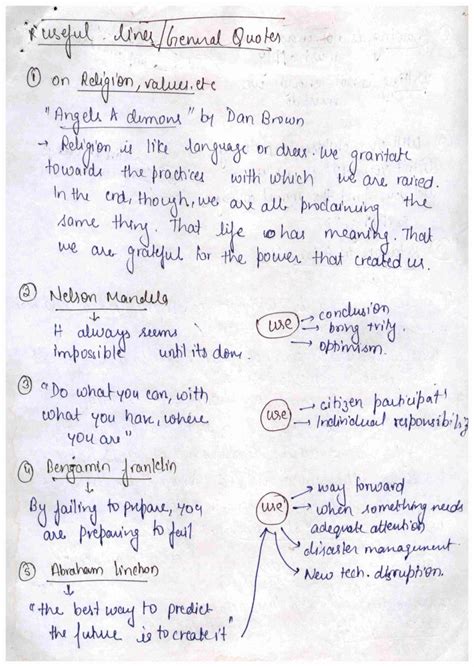 * useful lines / General Quotes
① on Religion, values. etc
"Angels A demons" by Dan Brown
→ Religion is like language or dress. we granitate
towards the practices with which we are raised.
In the end, though, we are all proclaiming the
same thing. That life has meaning. That
we are grateful for the power that created us.
② Nelson Mandela
It always seems
impossible until its done.
use → conclusion
→ optimism.
③ "Do what you can, with
what you have, where
you are"
use → citizen participat'
→ Individual responsibility
④ Benjamin franklin
By failing to prepare, you
are preparing to fail
use → way forward
→ when something needs
adequate attention
→ disaster management
→ New tech. disruption.
⑤ Abraham linchon
"the best way to predict
the future is to create it"